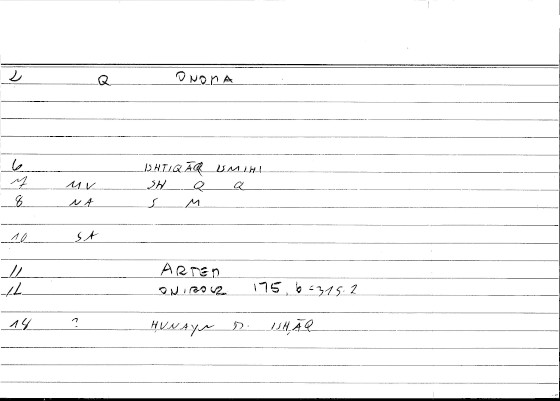 2 Q ONOMA
6 ISHTIQĀQ ISMIHI
7 MV SH Q Q
8 NA S M
10 SA
11 ARTEM
12 ONIROCR 175,6=315.2
14 ? HUNAYN B. ISḤĀQ